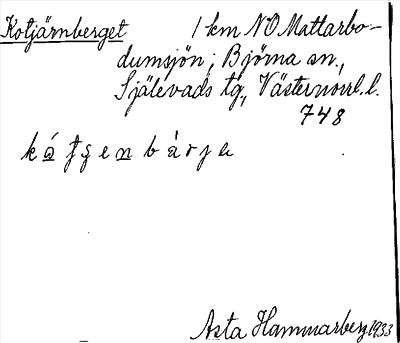 Kotjärnberget 1 km NO Mattarbo-
dumsjön; Björna sn.,
Själevads tg, Västernorrl. l.
748
Asta Hammarberg 1933